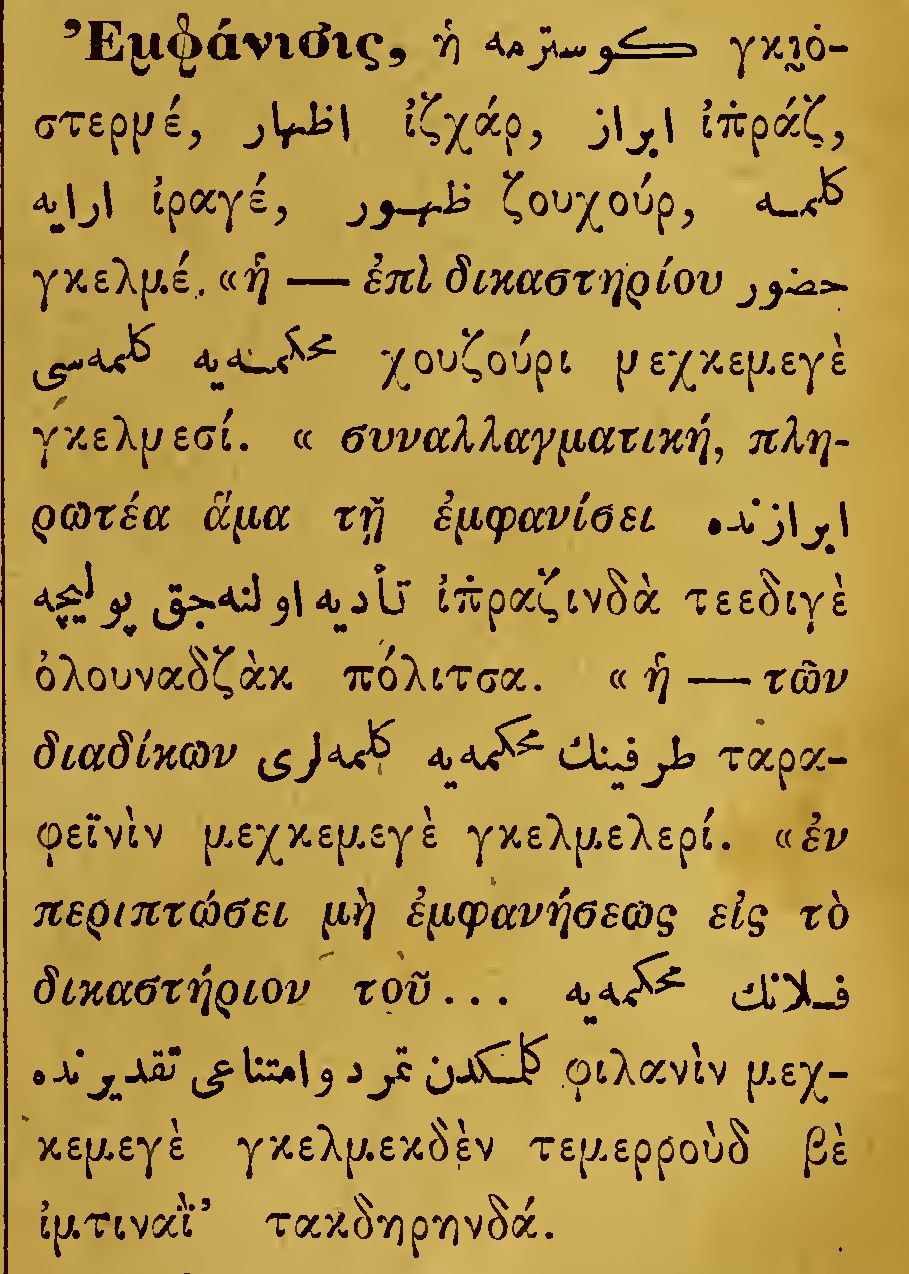 Ἐμφάνισις, ἡ كوسترمه γκι̰ό-
στερμέ, اظهار ἰζχάρ, ابراز ἰπ̇ράζ,
ارايه ἰραγέ, ظهور ζουχούρ, كلمه
γκελμέ. «ἡ — ἐπὶ δικαστηρίου حضور
محكمه‌يه كلمه‌سى χουζούρι μεχκεμεγὲ
γκελμεσί. « συναλλαγματική, πλη-
ρωτέα ἅμα τῇ ἐμφανίσει ابرازنده
تأديه اولنه‌جق پوليچه ἰπ̇ραζινδὰ τεεδιγὲ
ὀλουναδζὰκ πόλιτσα. « ἡ — τῶν
διαδίκων طرفينك محكمه‌يه كلمه‌لرى ταρα-
φεϊνὶν μεχκεμεγὲ γκελμελερί. «ἐν
περιπτώσει μὴ ἐμφανήσεως εἰς τὸ
δικαστήριον τοῦ... فلانك محكمه‌يه
كلمكدن تمرد وامتناعى تقديرنده φιλανὶν μεχ-
κεμεγὲ γκελμεκδὲν τεμερροὺδ βὲ
ἰμτιναῒ’ τακδηρηνδά.